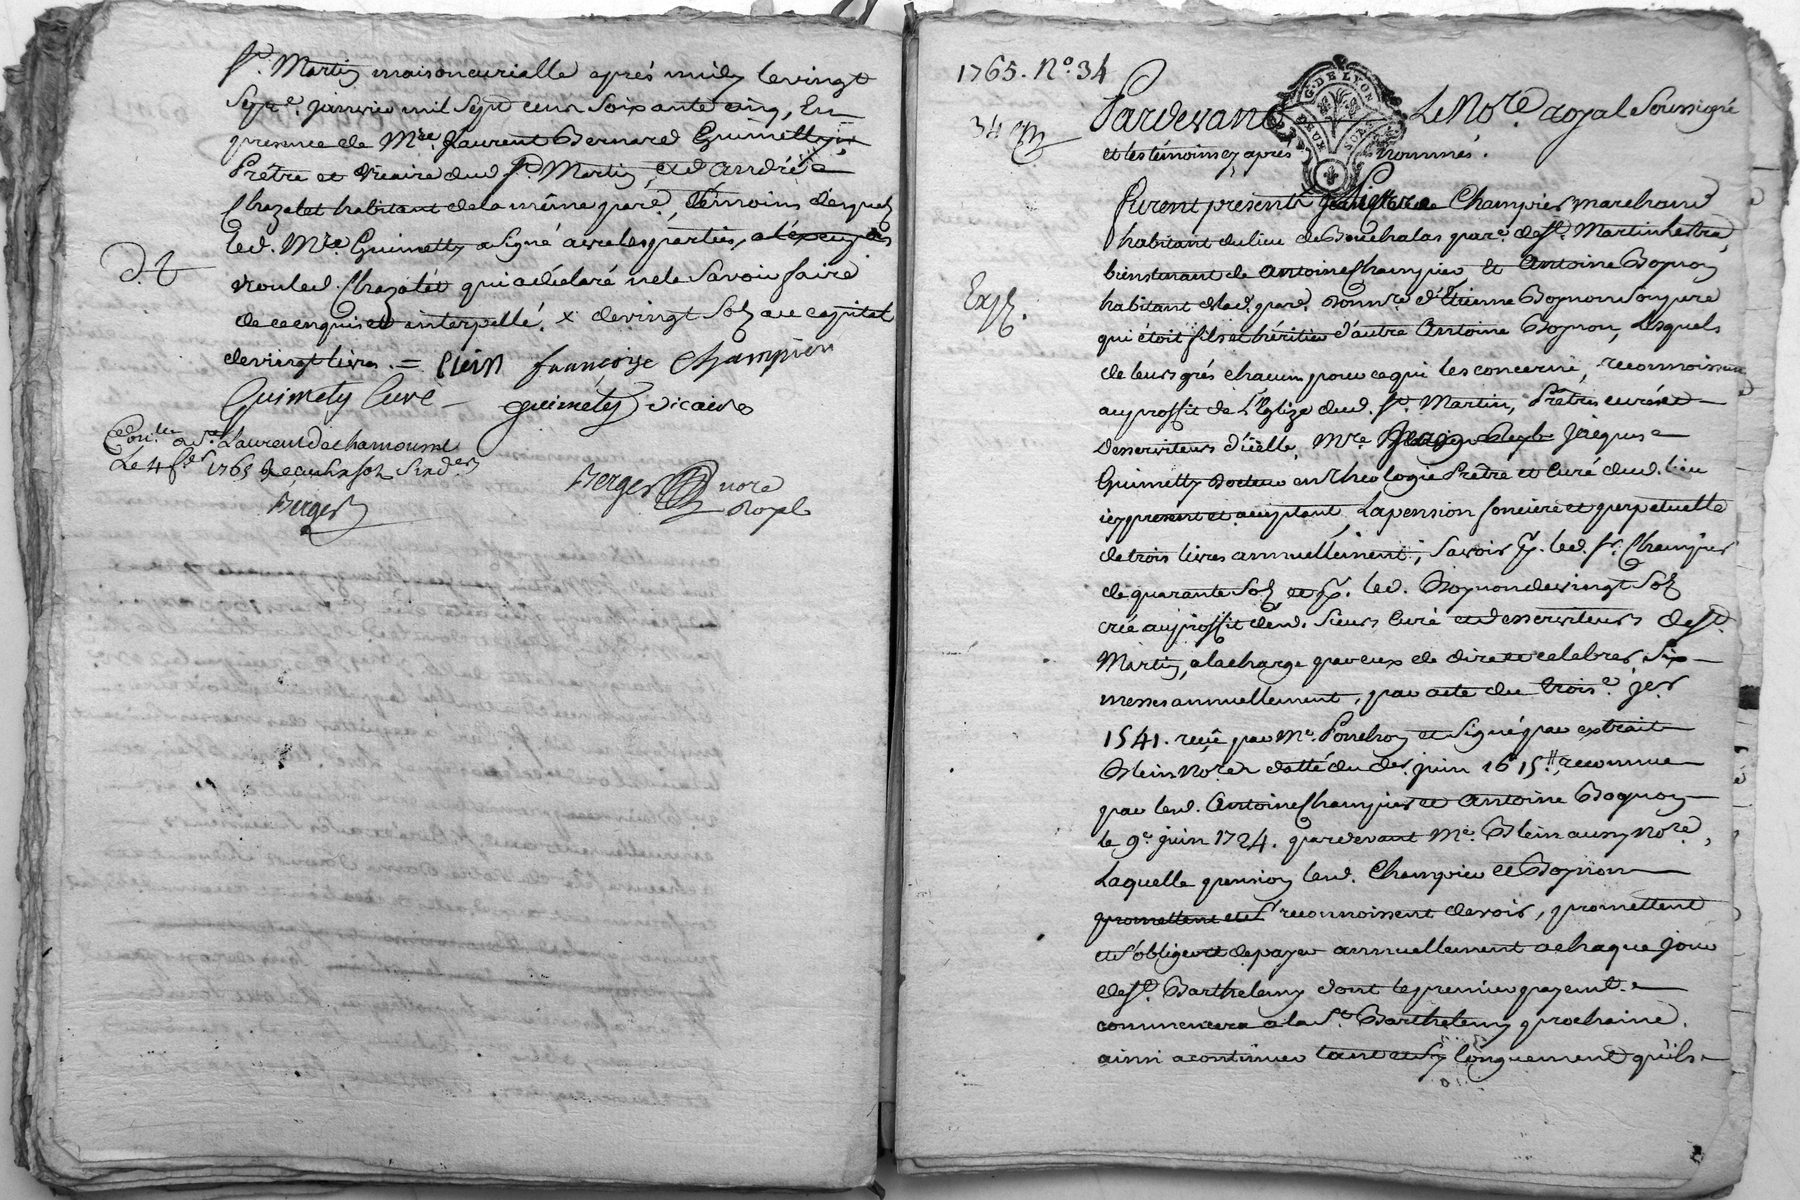 St. Martin maison curialle après midy le vingt
Sept.e Janvier mil Sept cens Soixante cinq, En
presence de Mre. Laurent Bernard Guimetty
Prêtre et vicaire dud. St. Martin, et d'andré
Chazalet habitant de la même parr.e, témoins desquels
led. Mre. Guimetty a signé avec les parties,
non led. Chazalet qui a déclaré ne le Savoir faire
de ce enquis et interpellé. x de vingt Solz au capital
de vingt livres. =
françoise Champier
Guimety Curé
guimety vicaire
Le 4 fer. 1765
Berger
Berger nore
Royal
1765. No. 34
34
G. DE LYON
Pardevant Le Nore. royal Soussigné
et les témoins cy après nommés.
furent présents Champier marchand
habitant du lieu de Bouchalas parr.e de St. Martin
bientenant de Antoine Champier, et Antoine Bognon
habitant de lad. parr.e d'Etienne Bognon Son pere
qui étoit fils et héritier d'autre Antoine Bognon, Lesquels
de leurs grés chacun pour ce qui les concerne, reconnoissent
au proffit de L'Eglize dud. St. Martin, Prêtres curé et
Desserviteurs d'icelle, Mre. Jacques
Guimetty Docteur en Theologie Prêtre et Curé dud. lieu
icy present et acceptant, La pension fonciere et perpetuelle
de trois livres annuellement; Savoir p. led. Sr. Champier
de quarante Solz et p. led. Bognon de vingt Solz
créé au proffit dud. Sieurs Curé et desserviteurs de St.
Martin, a la charge par eux de dire et celebrer Six
messes annuellement, par acte du trois.e jer
1541. reçû par Me. Ponchon et Signé par extrait
Blein Nore. datté du der. juin 1615. reconnue
par led. Antoine Champier et Antoine Bognon
le 9e juin 1724. pardevant Me. Blein aussy Nore.,
Laquelle pension led. Champier et Bognon
promettent et reconnoissent devoir, promettent
et S'obligent de payer annuellement a chaque jour
de St. Barthelemy dont le premier payemt.
commencera a la St. Barthelemy prochaine.
ainsi a continuer tant et Sy longuement qu'ils